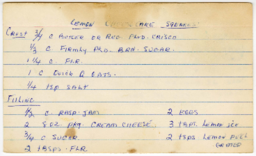 LEMON CHEESECAKE SQUARES
CRUST 3/4 C BUTTER OR REG. FLD. CRISCO
1/3 C FIRMLY PKD. BRN. SUGAR
1 1/4 C FLR
1 C QUICK R. OATS.
1/4 TSP SALT
FILLING
1/2 C RASP. JAM 2 EGGS
2 8 OZ. PKG. CREAM CHEESE. 3 TBSP. LEMON JCE
3/4 C SUGAR 2 TSPS LEMON PEEL
2 TBSPS. FLR GRATED